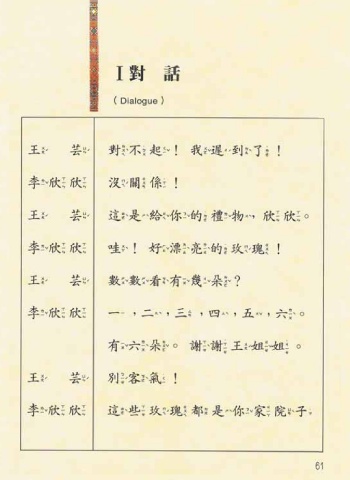 I 對 話
( Dialogue )
王 芸 對不起！ 我遲到了！
李欣欣 沒關係！
王 芸 這是給你的禮物，欣欣。
李欣欣 哇！ 好漂亮的玫瑰！
王 芸 數數看有幾朵？
李欣欣 一，二，三，四，五，六。
有六朵。 謝謝王姐姐。
王 芸 別客氣！
李欣欣 這些玫瑰都是你家院子
61